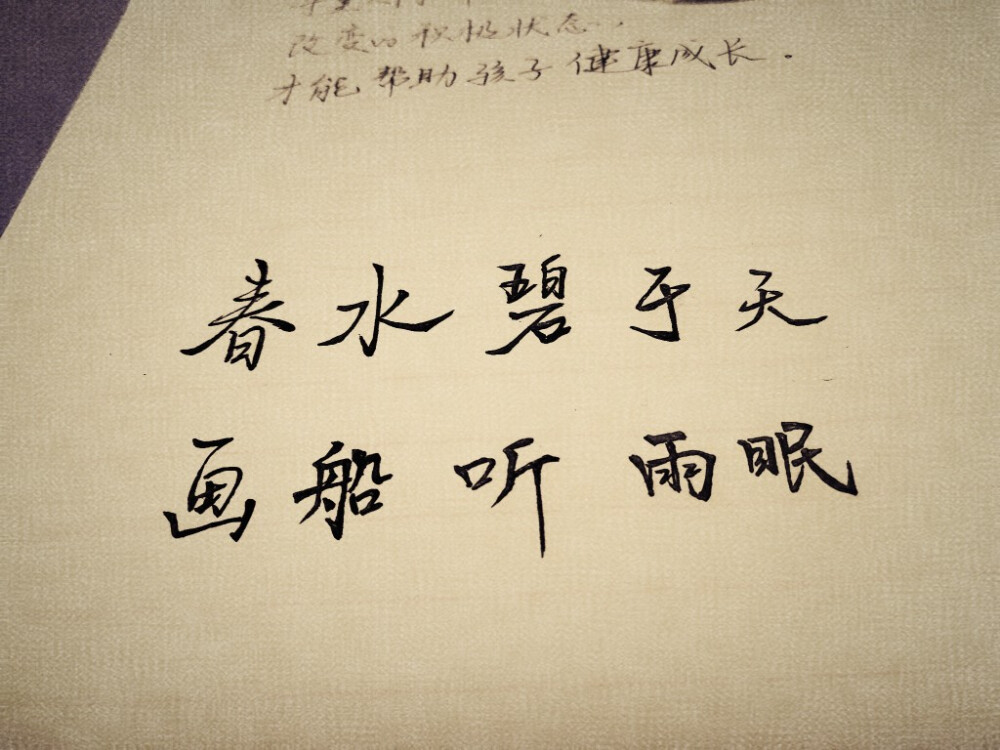 改变的积极状态..
才能帮助孩子健康成长.
春水碧于天
画船听雨眠